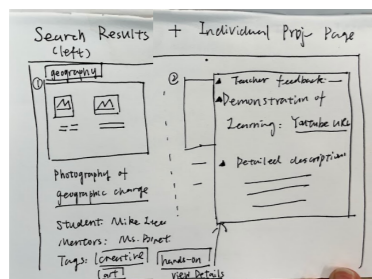 Search Results
(left)
+ Individual Proj Page
①
geography
Photography of
geographic change
Student: Mike
Mentors: Ms.
Tags: creative hands-on
art
view Details
②
Teacher feedback:
Demonstration of
Learning: Youtube URL
Detailed description